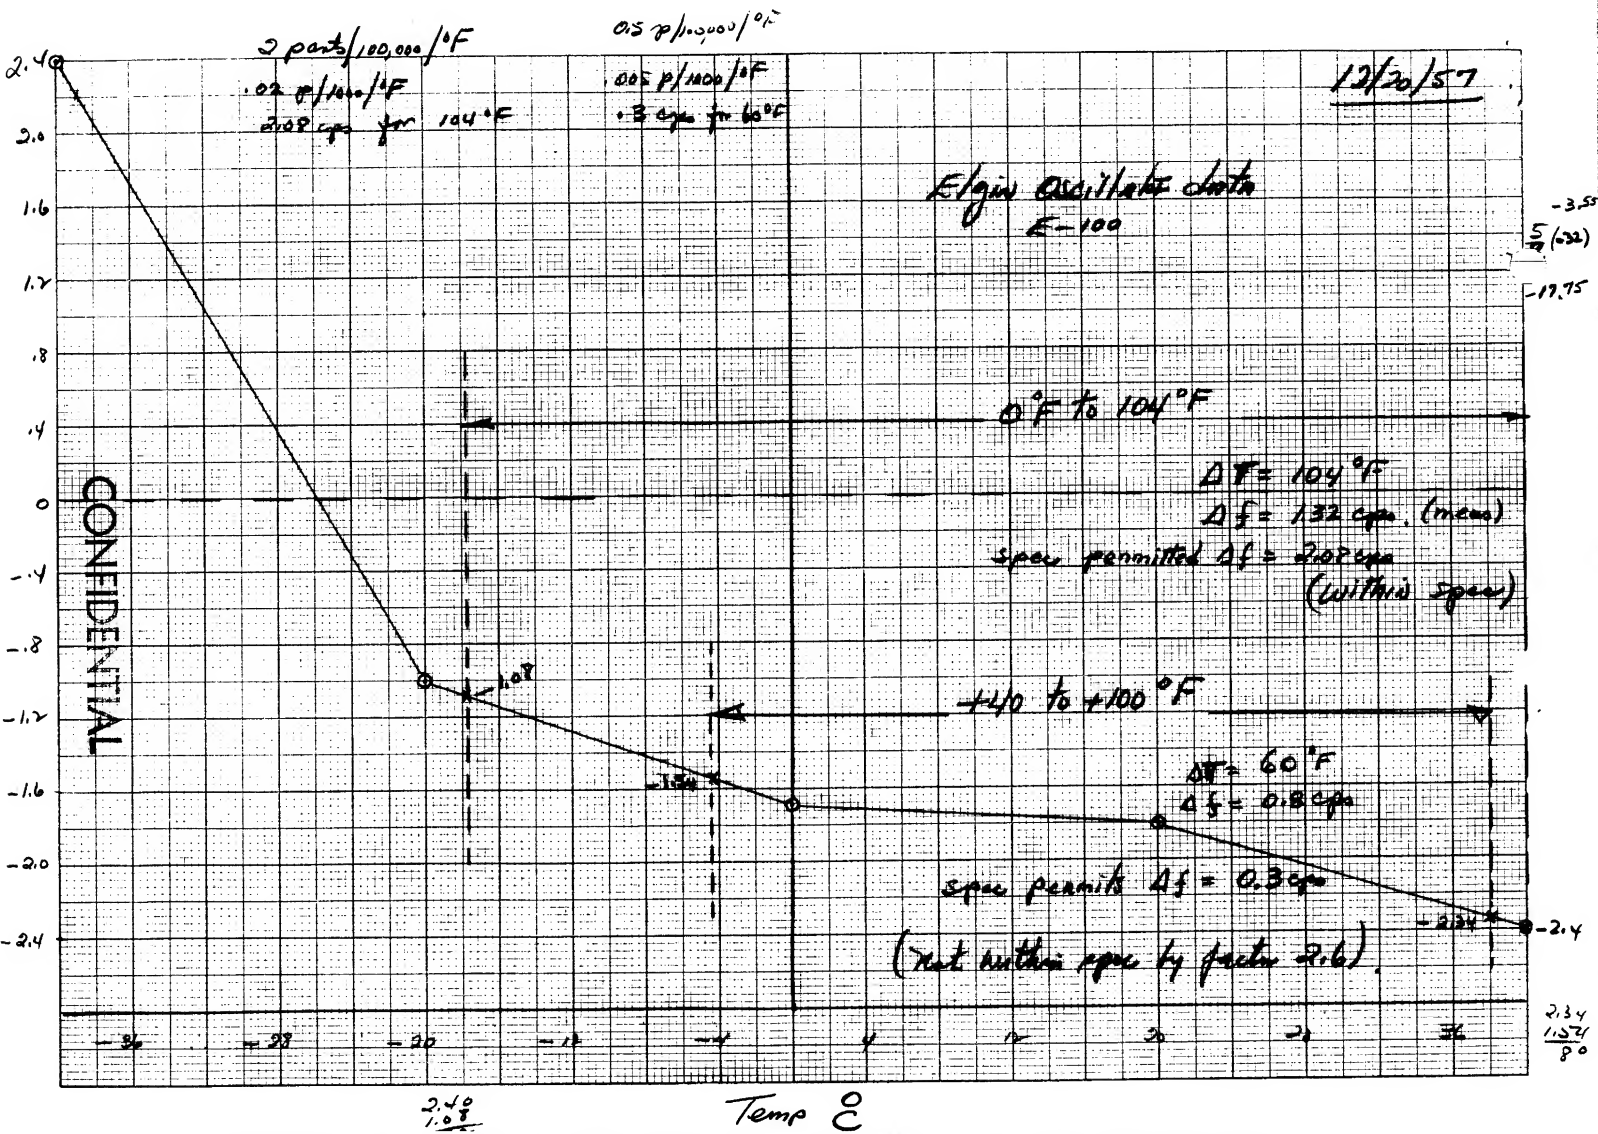 2 parts/100,000/°F
.02 p/1000/°F
2.08 cps for 104°F
0.5 p/100,000/°F
.005 p/1000/°F
.3 cps for 60°F
12/20/57
Elgin Oscillator data
E-100
-3.55
5/9 (-32)
-17.75
2.4
2.0
1.6
1.2
.8
.4
0
-.4
-.8
-1.2
-1.6
-2.0
-2.4
CONFIDENTIAL
0°F to 104°F
ΔT = 104°F
Δf = 1.32 cps. (meas)
spec permitted Δf = 2.08 cps
(within spec)
-1.08
+40 to +100°F
-1.54
ΔT = 60°F
Δf = 0.8 cps
spec permits Δf = 0.3 cps
-2.34
-2.4
(not within spec by factor 2.6).
-36 -28 -20 -12 -4 4 12 20 28 36
2.34
1.54
80
2.40
1.08
Temp °C